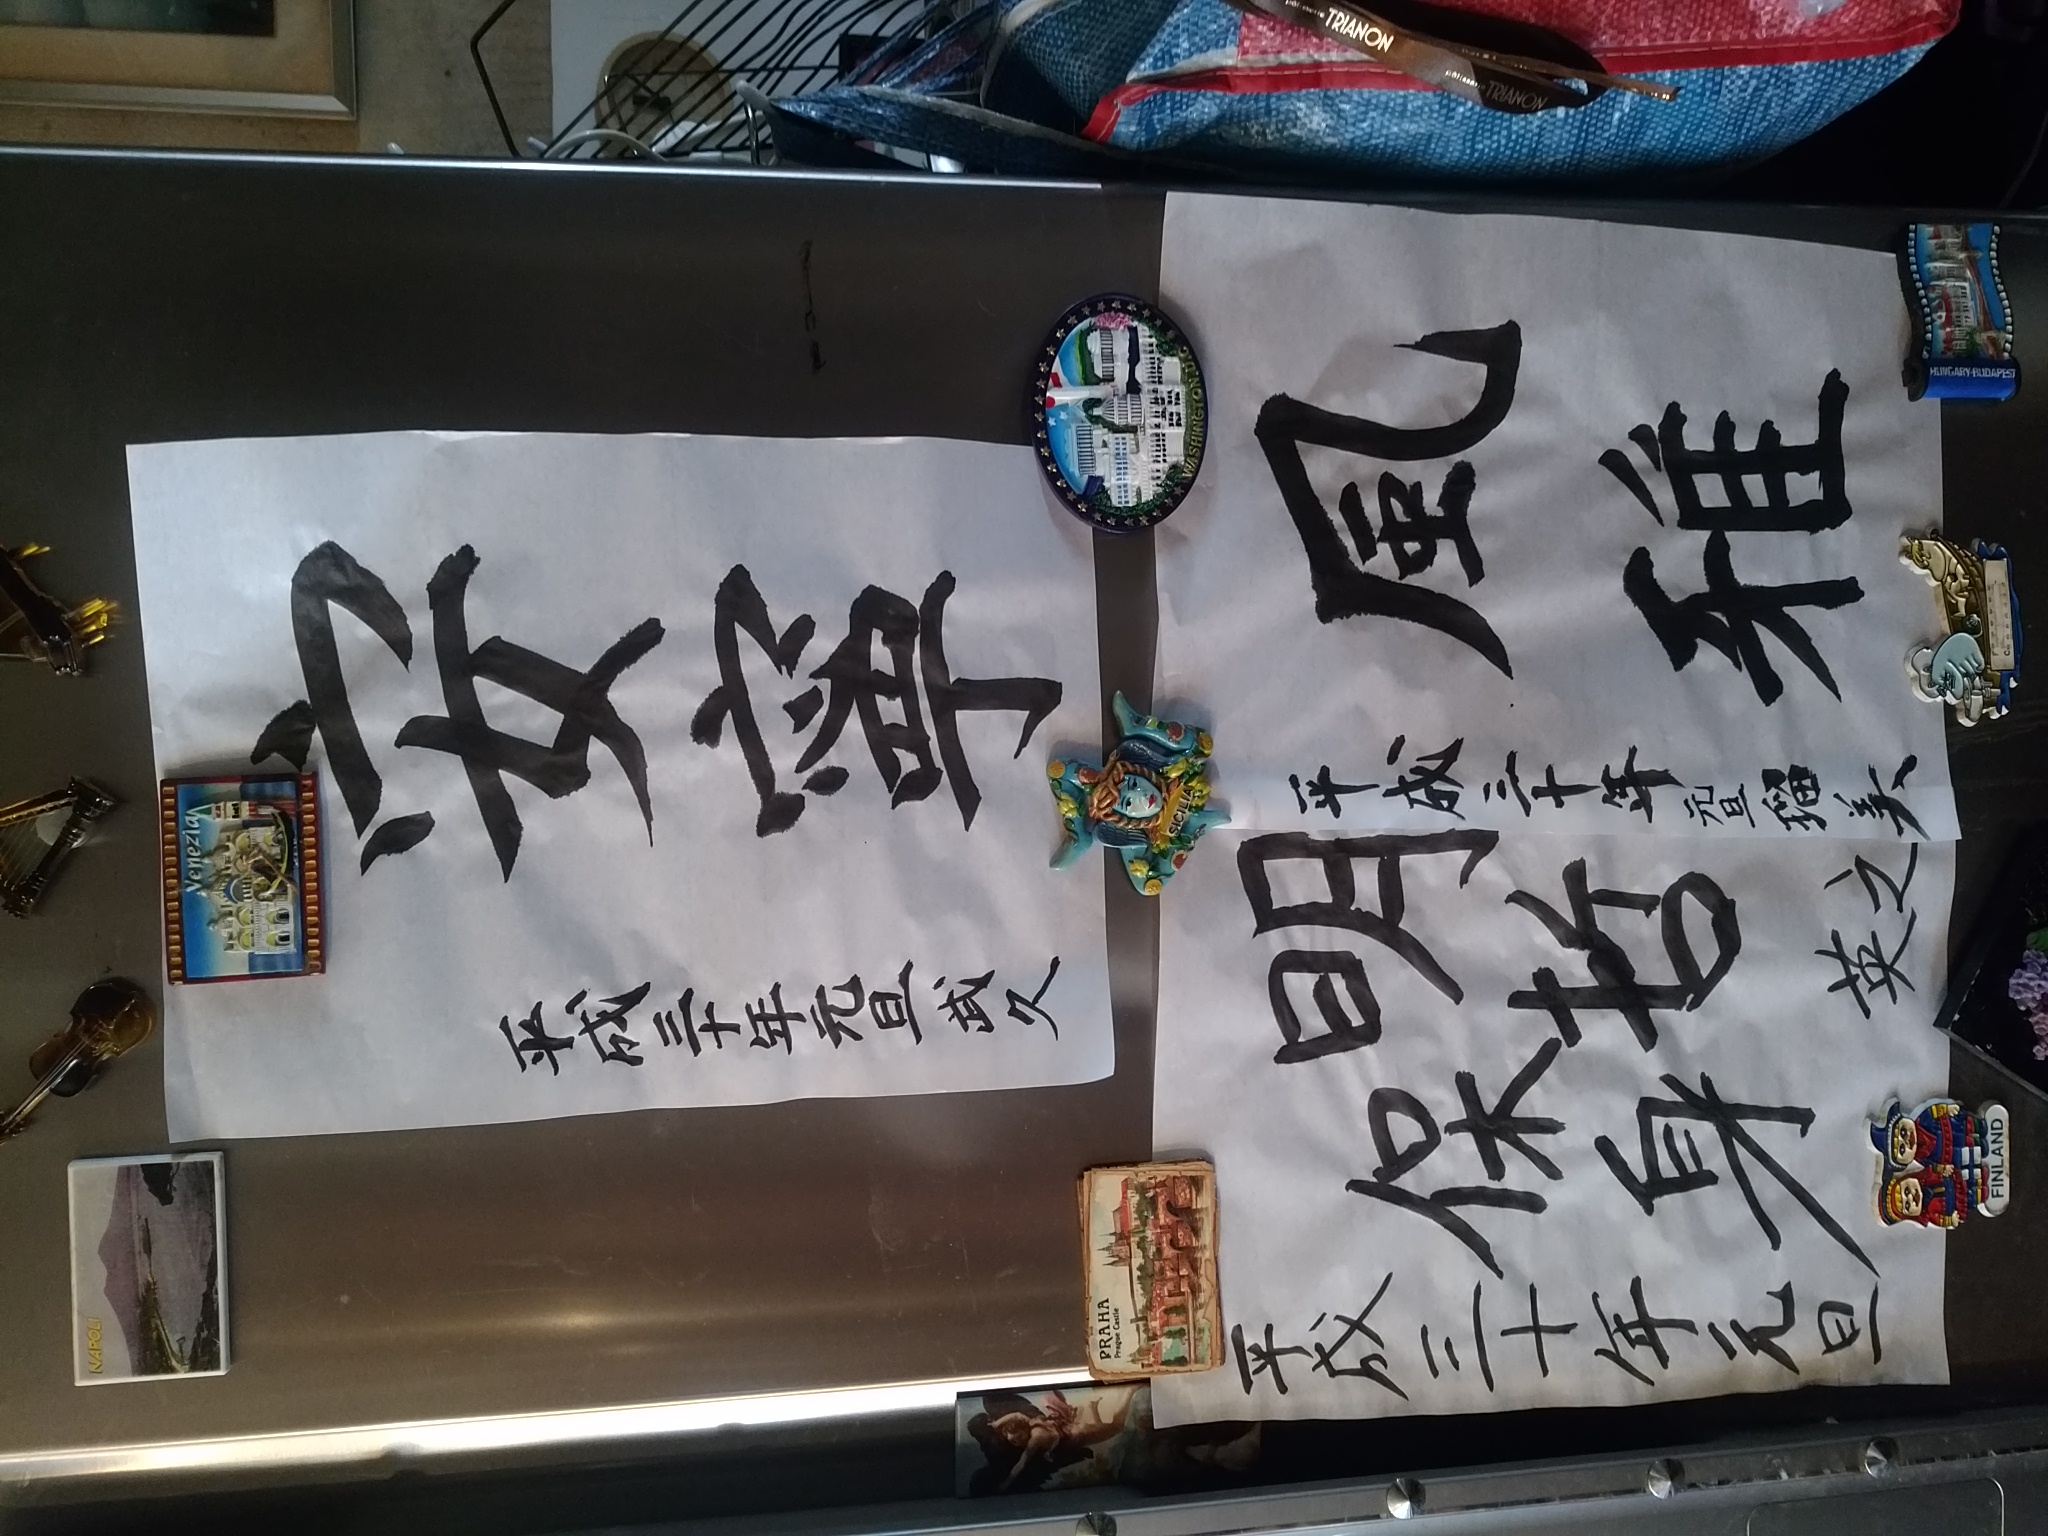 NAPOLI
Venezia
安寧
平成三十年元旦 武久
PRAHA
Prague Castle
SICILIA
WASHINGTON, D.C
風雅
平成三十年元旦 瑠美
明哲
保身
平成三十年元旦
英之
FINLAND
HUNGARY-BUDAPEST
TRIANON
TRIANON